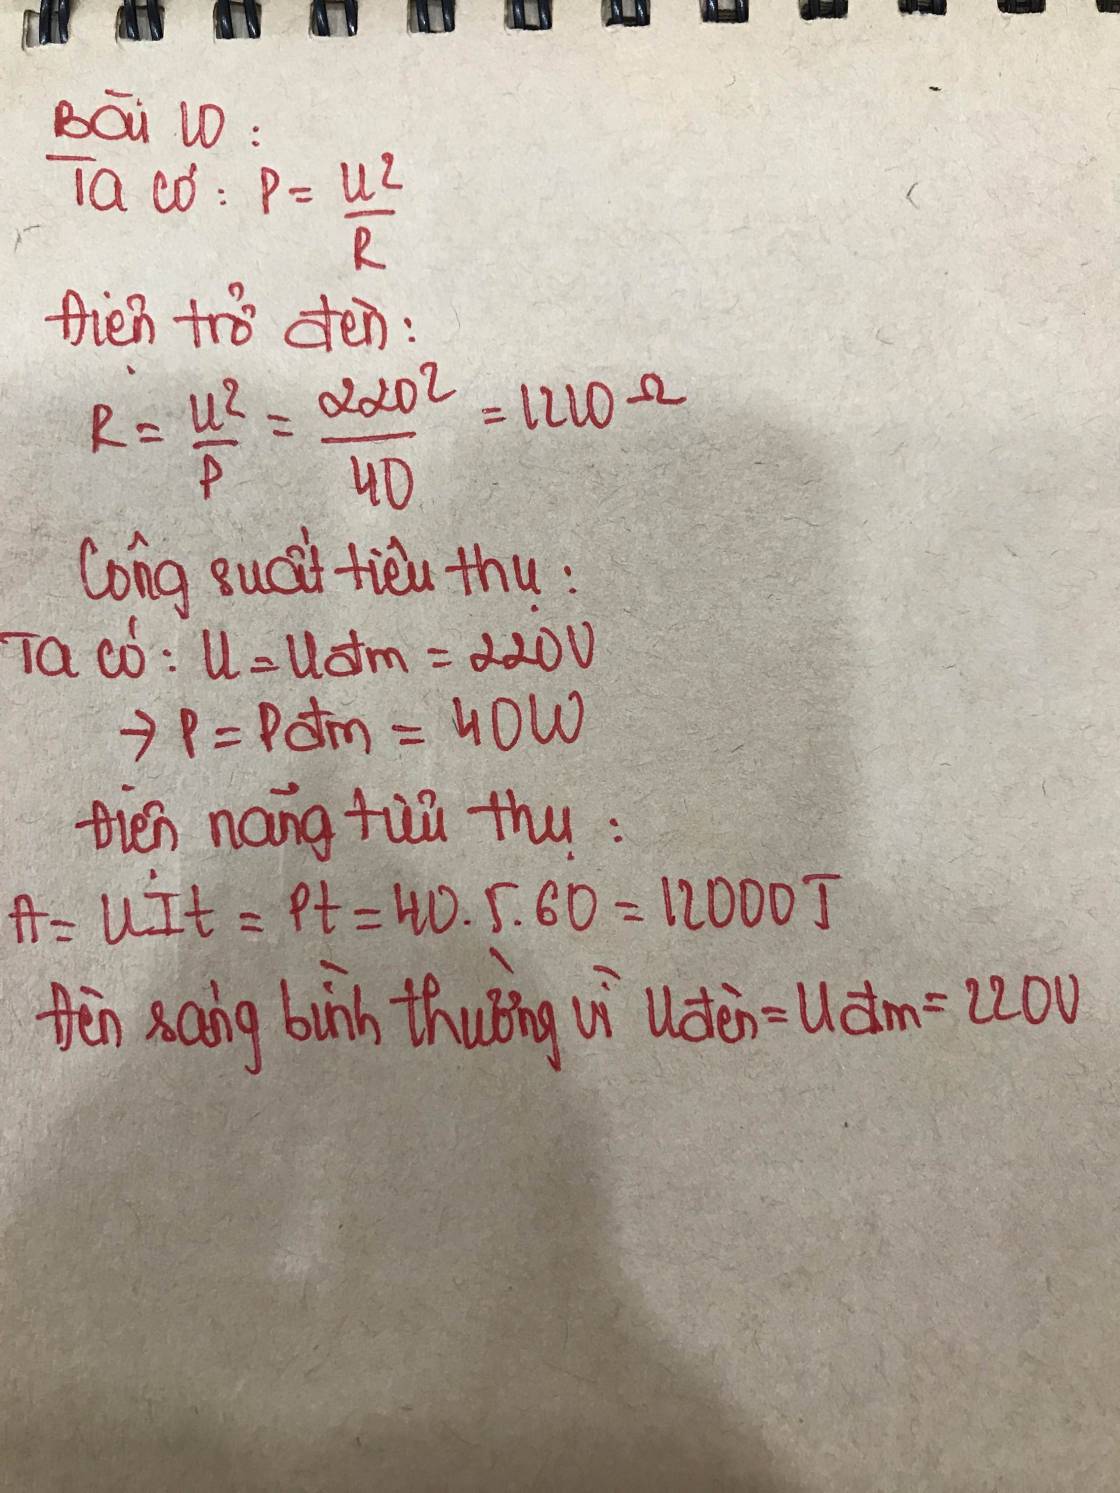 Bài 10:
Ta có: P = U²/R
Điện trở đèn:
R = U²/P = 220²/40 = 1210 Ω
Công suất tiêu thụ:
Ta có: U = Uđm = 220V
→ P = Pđm = 40W
Điện năng tiêu thụ:
A = UIt = Pt = 40.5.60 = 12000J
Đèn sáng bình thường vì Uđèn = Uđm = 220V